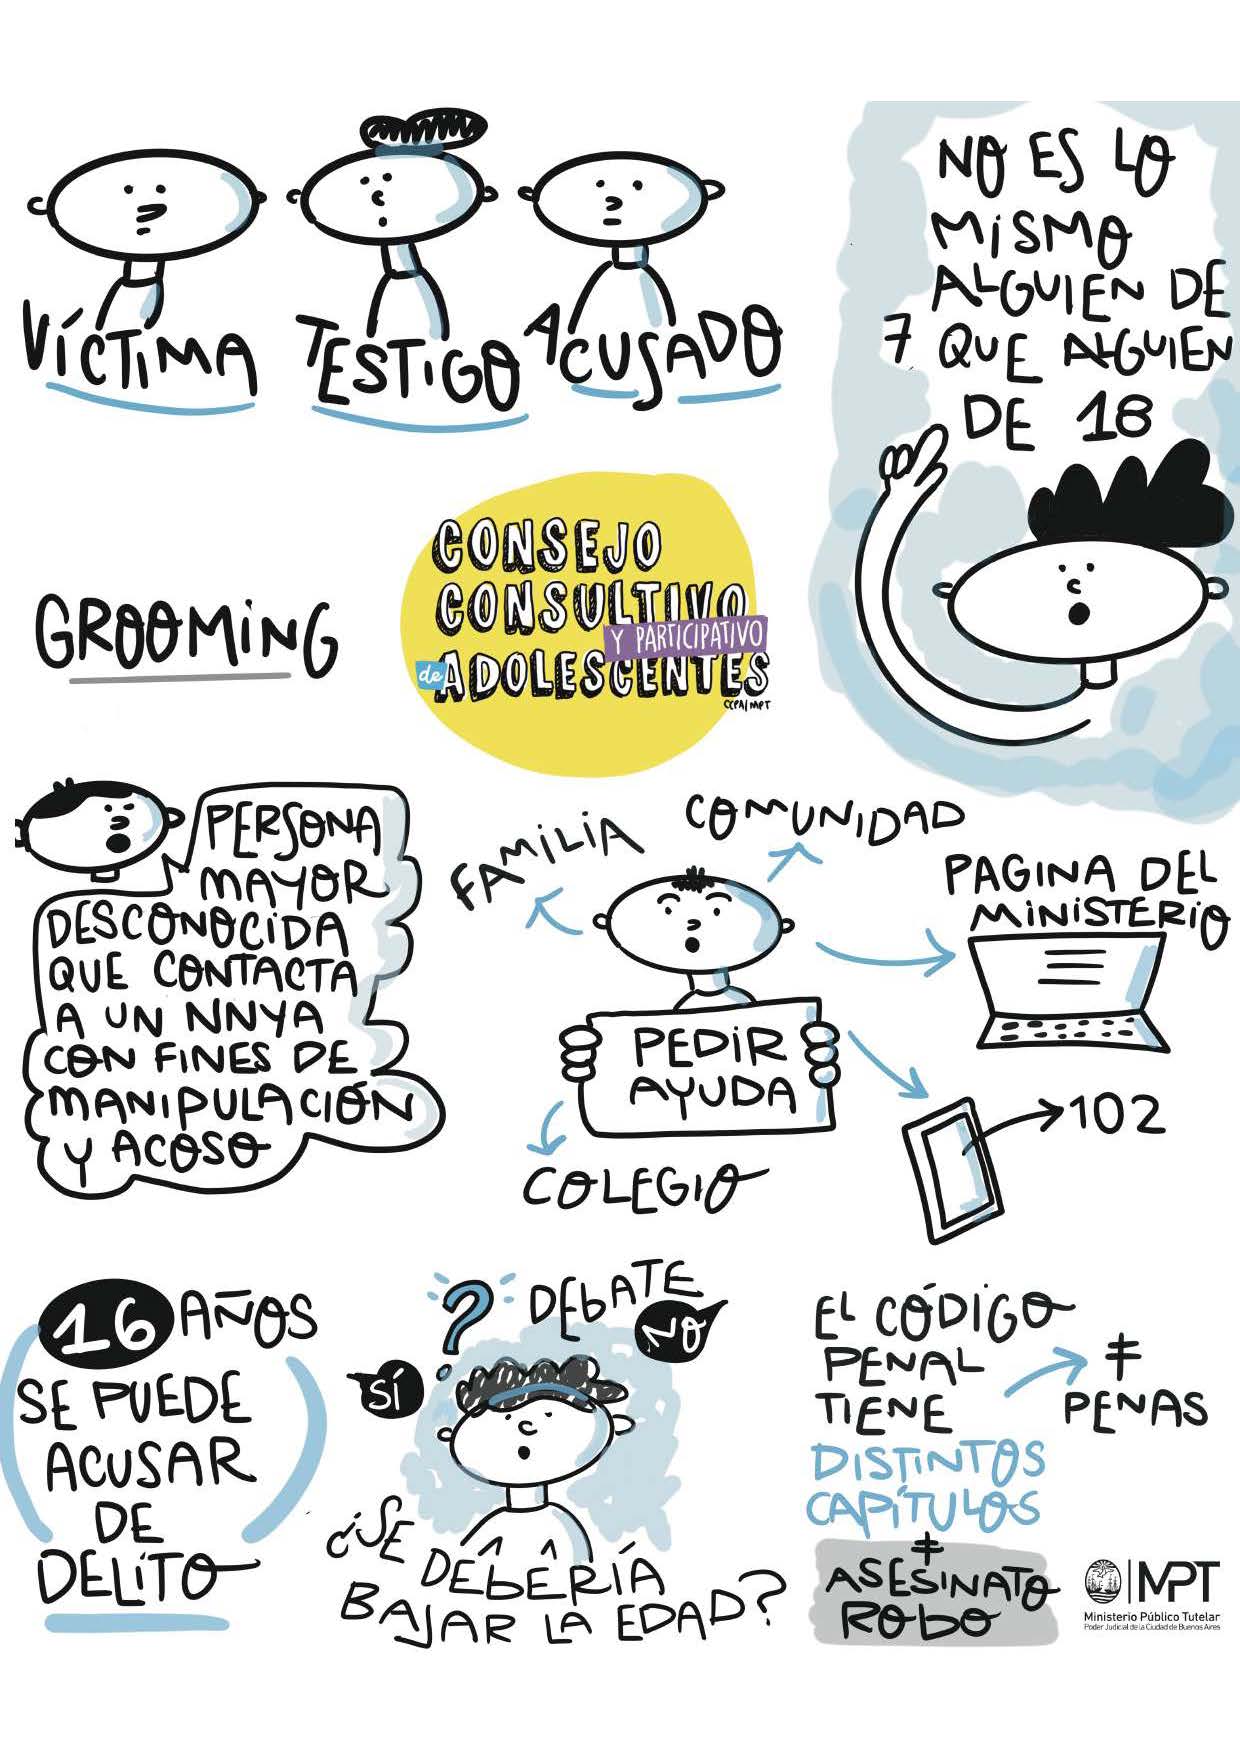 VÍCTIMA
TESTIGO
ACUSADO
NO ES LO
MISMO
ALGUIEN DE
7 QUE ALGUIEN
DE 18
CONSEJO
CONSULTIVO
Y PARTICIPATIVO
de ADOLESCENTES
CCPA/MPT
GROOMING
PERSONA
MAYOR
DESCONOCIDA
QUE CONTACTA
A UN NNYA
CON FINES DE
MANIPULACIÓN
Y ACOSO
FAMILIA
COMUNIDAD
PAGINA DEL
MINISTERIO
PEDIR
AYUDA
102
COLEGIO
16 AÑOS
SE PUEDE
ACUSAR
DE
DELITO
? DEBATE
SÍ
NO
¿SE
DEBERÍA
BAJAR LA EDAD?
EL CÓDIGO
PENAL
TIENE
DISTINTOS
CAPÍTULOS
≠
PENAS
≠
ASESINATO
ROBO
MPT
Ministerio Público Tutelar
Poder Judicial de la Ciudad de Buenos Aires